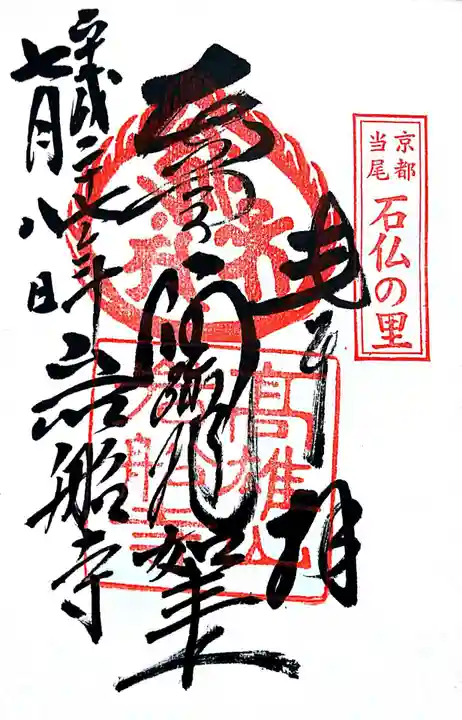 京都
当尾
石仏の里
奉拝
阿弥陀如来
高雄山
岩船寺
平成二十年
七月八日 岩船寺